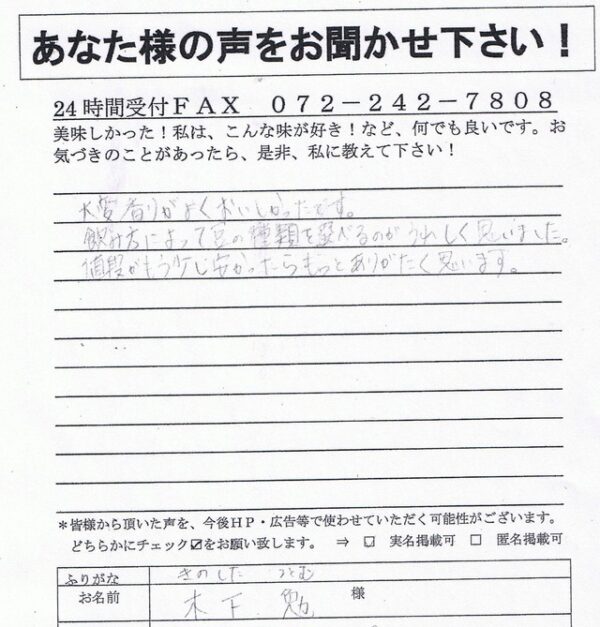 あなた様の声をお聞かせ下さい！
24時間受付ＦＡＸ　０７２－２４２－７８０８
美味しかった！私は、こんな味が好き！など、何でも良いです。お
気づきのことがあったら、是非、私に教えて下さい！
大変香りがよくおいしかったです。
飲み方によって豆の種類を選べるのがうれしく思いました。
値段がもう少し安かったらもっとありがたく思います。
＊皆様から頂いた声を、今後ＨＰ・広告等で使わせていただく可能性がございます。
どちらかにチェック☑をお願い致します。　⇒　☐　実名掲載可　☐　匿名掲載可
ふりがな　きのした　つとむ
お名前　木下　勉　様